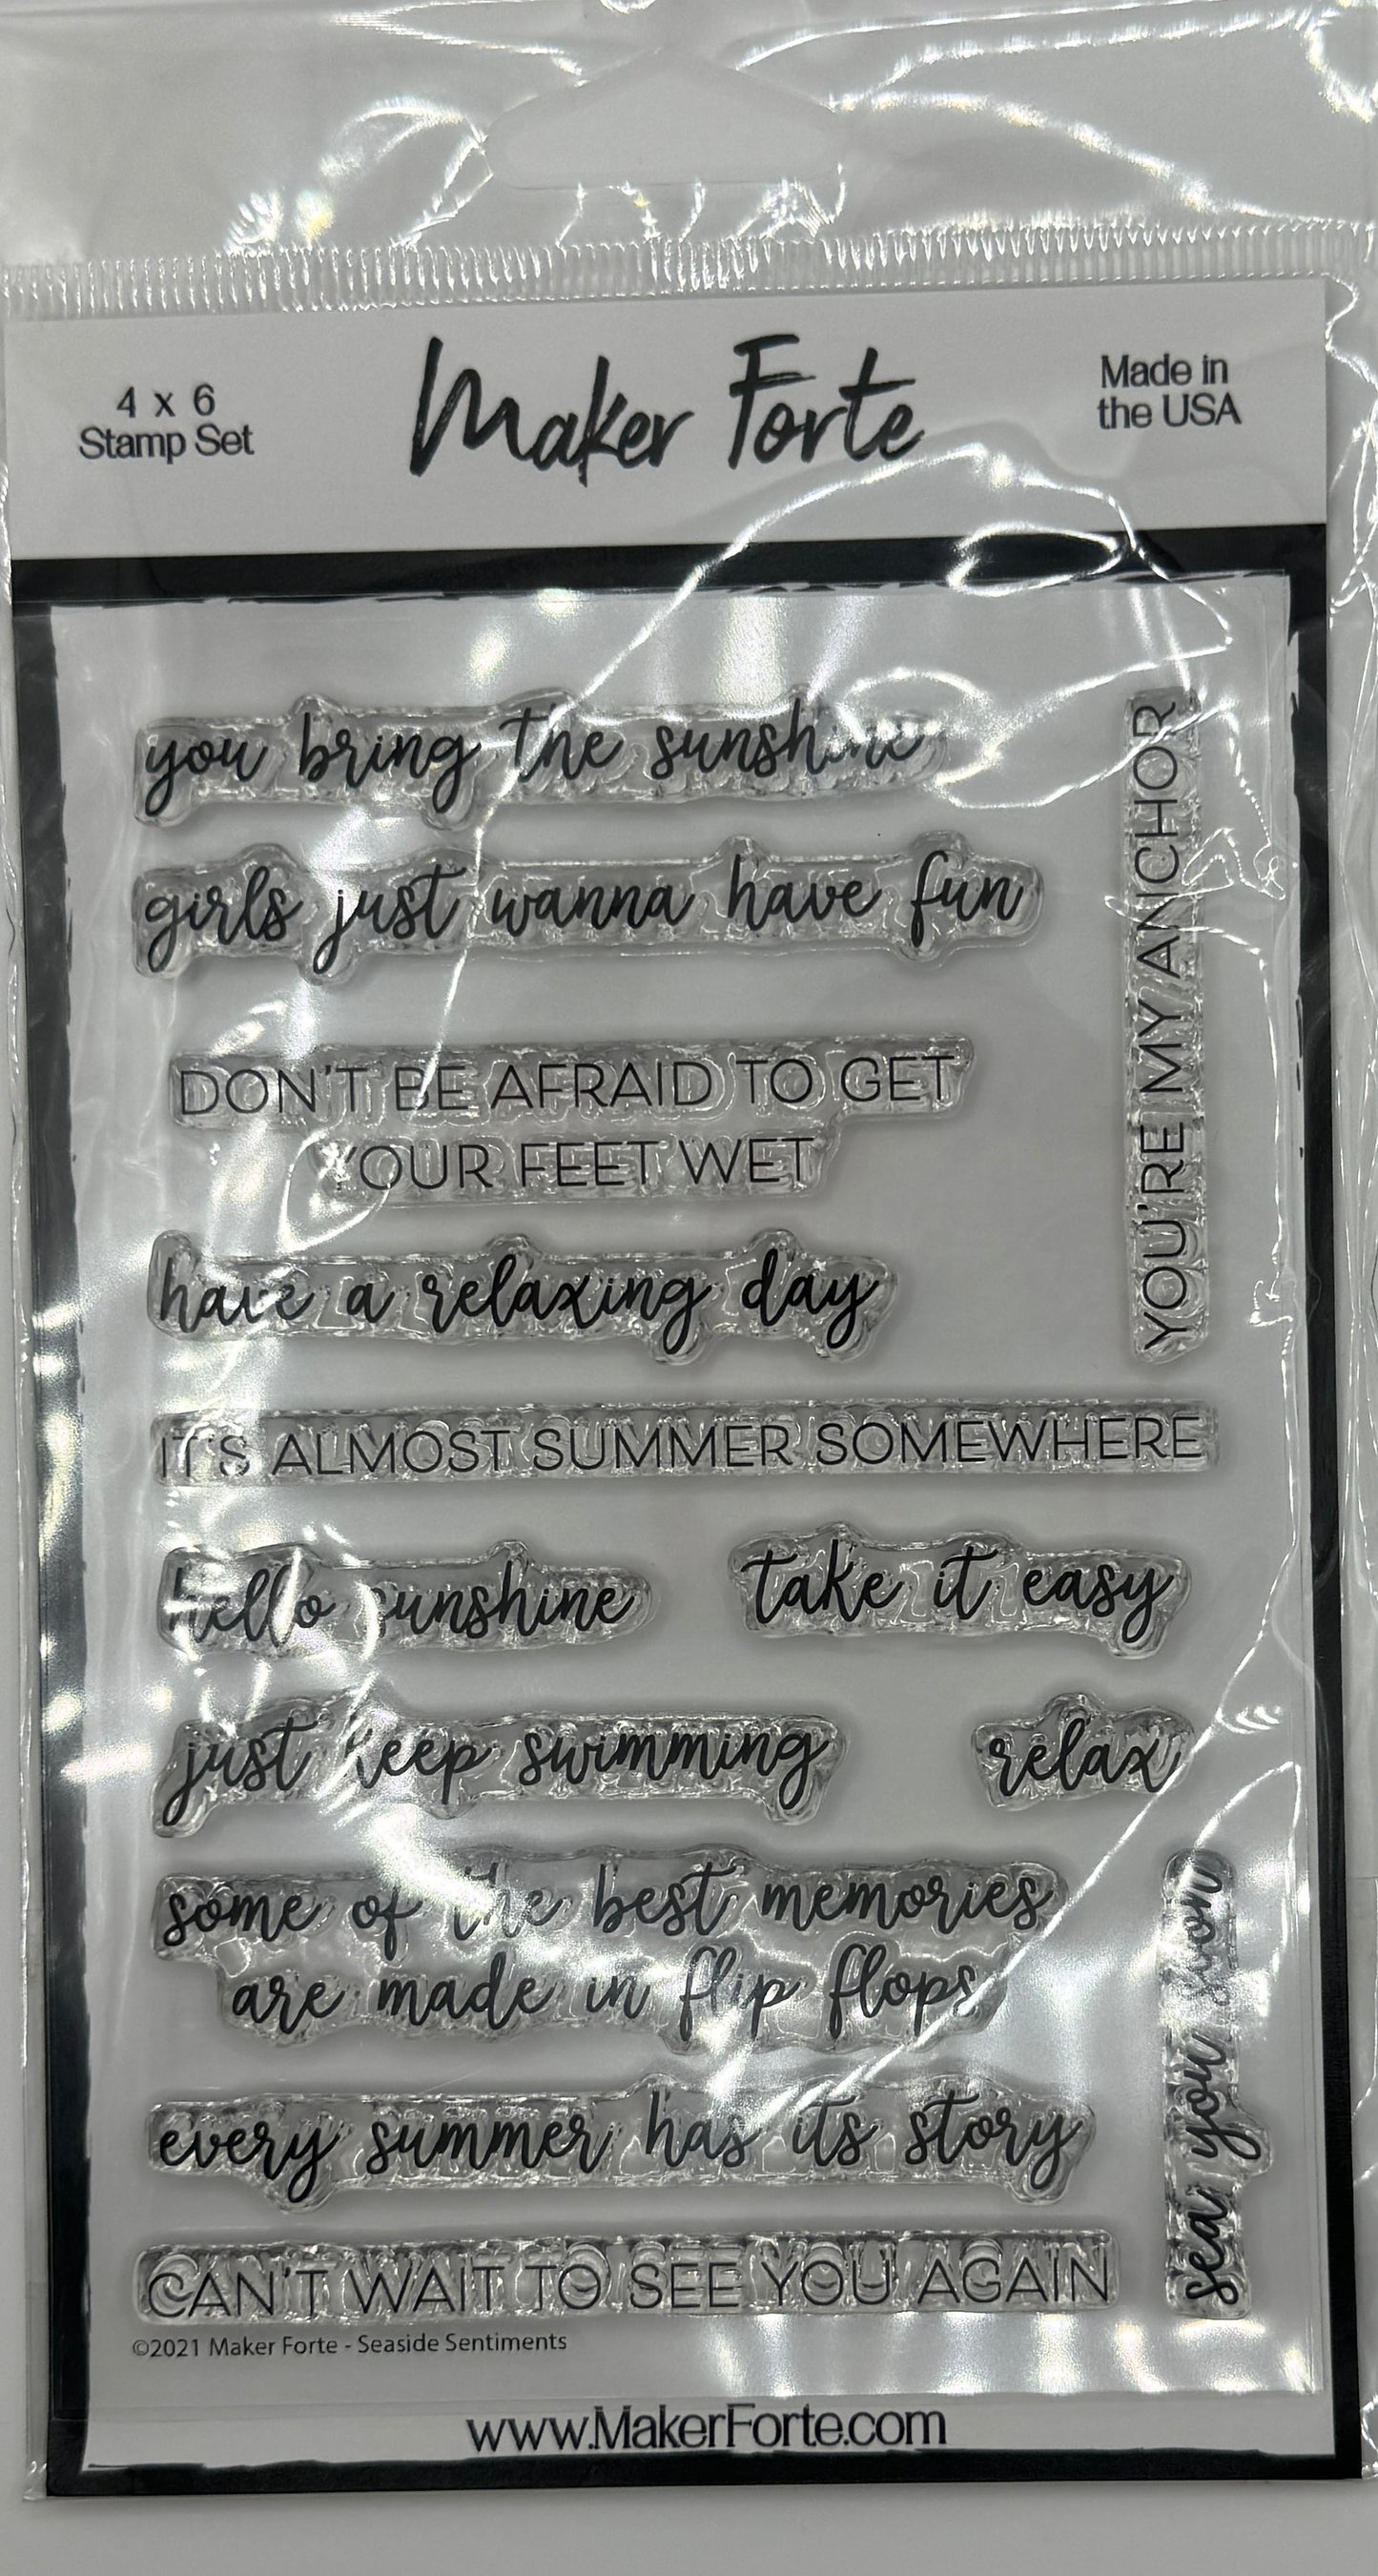 4 x 6
Stamp Set
Maker Forte
Made in
the USA
you bring the sunshine
girls just wanna have fun
YOU'RE MY ANCHOR
DON'T BE AFRAID TO GET
YOUR FEET WET
have a relaxing day
IT'S ALMOST SUMMER SOMEWHERE
hello sunshine
take it easy
just keep swimming
relax
some of the best memories
are made in flip flops
sea you soon
every summer has its story
CAN'T WAIT TO SEE YOU AGAIN
©2021 Maker Forte - Seaside Sentiments
www.MakerForte.com